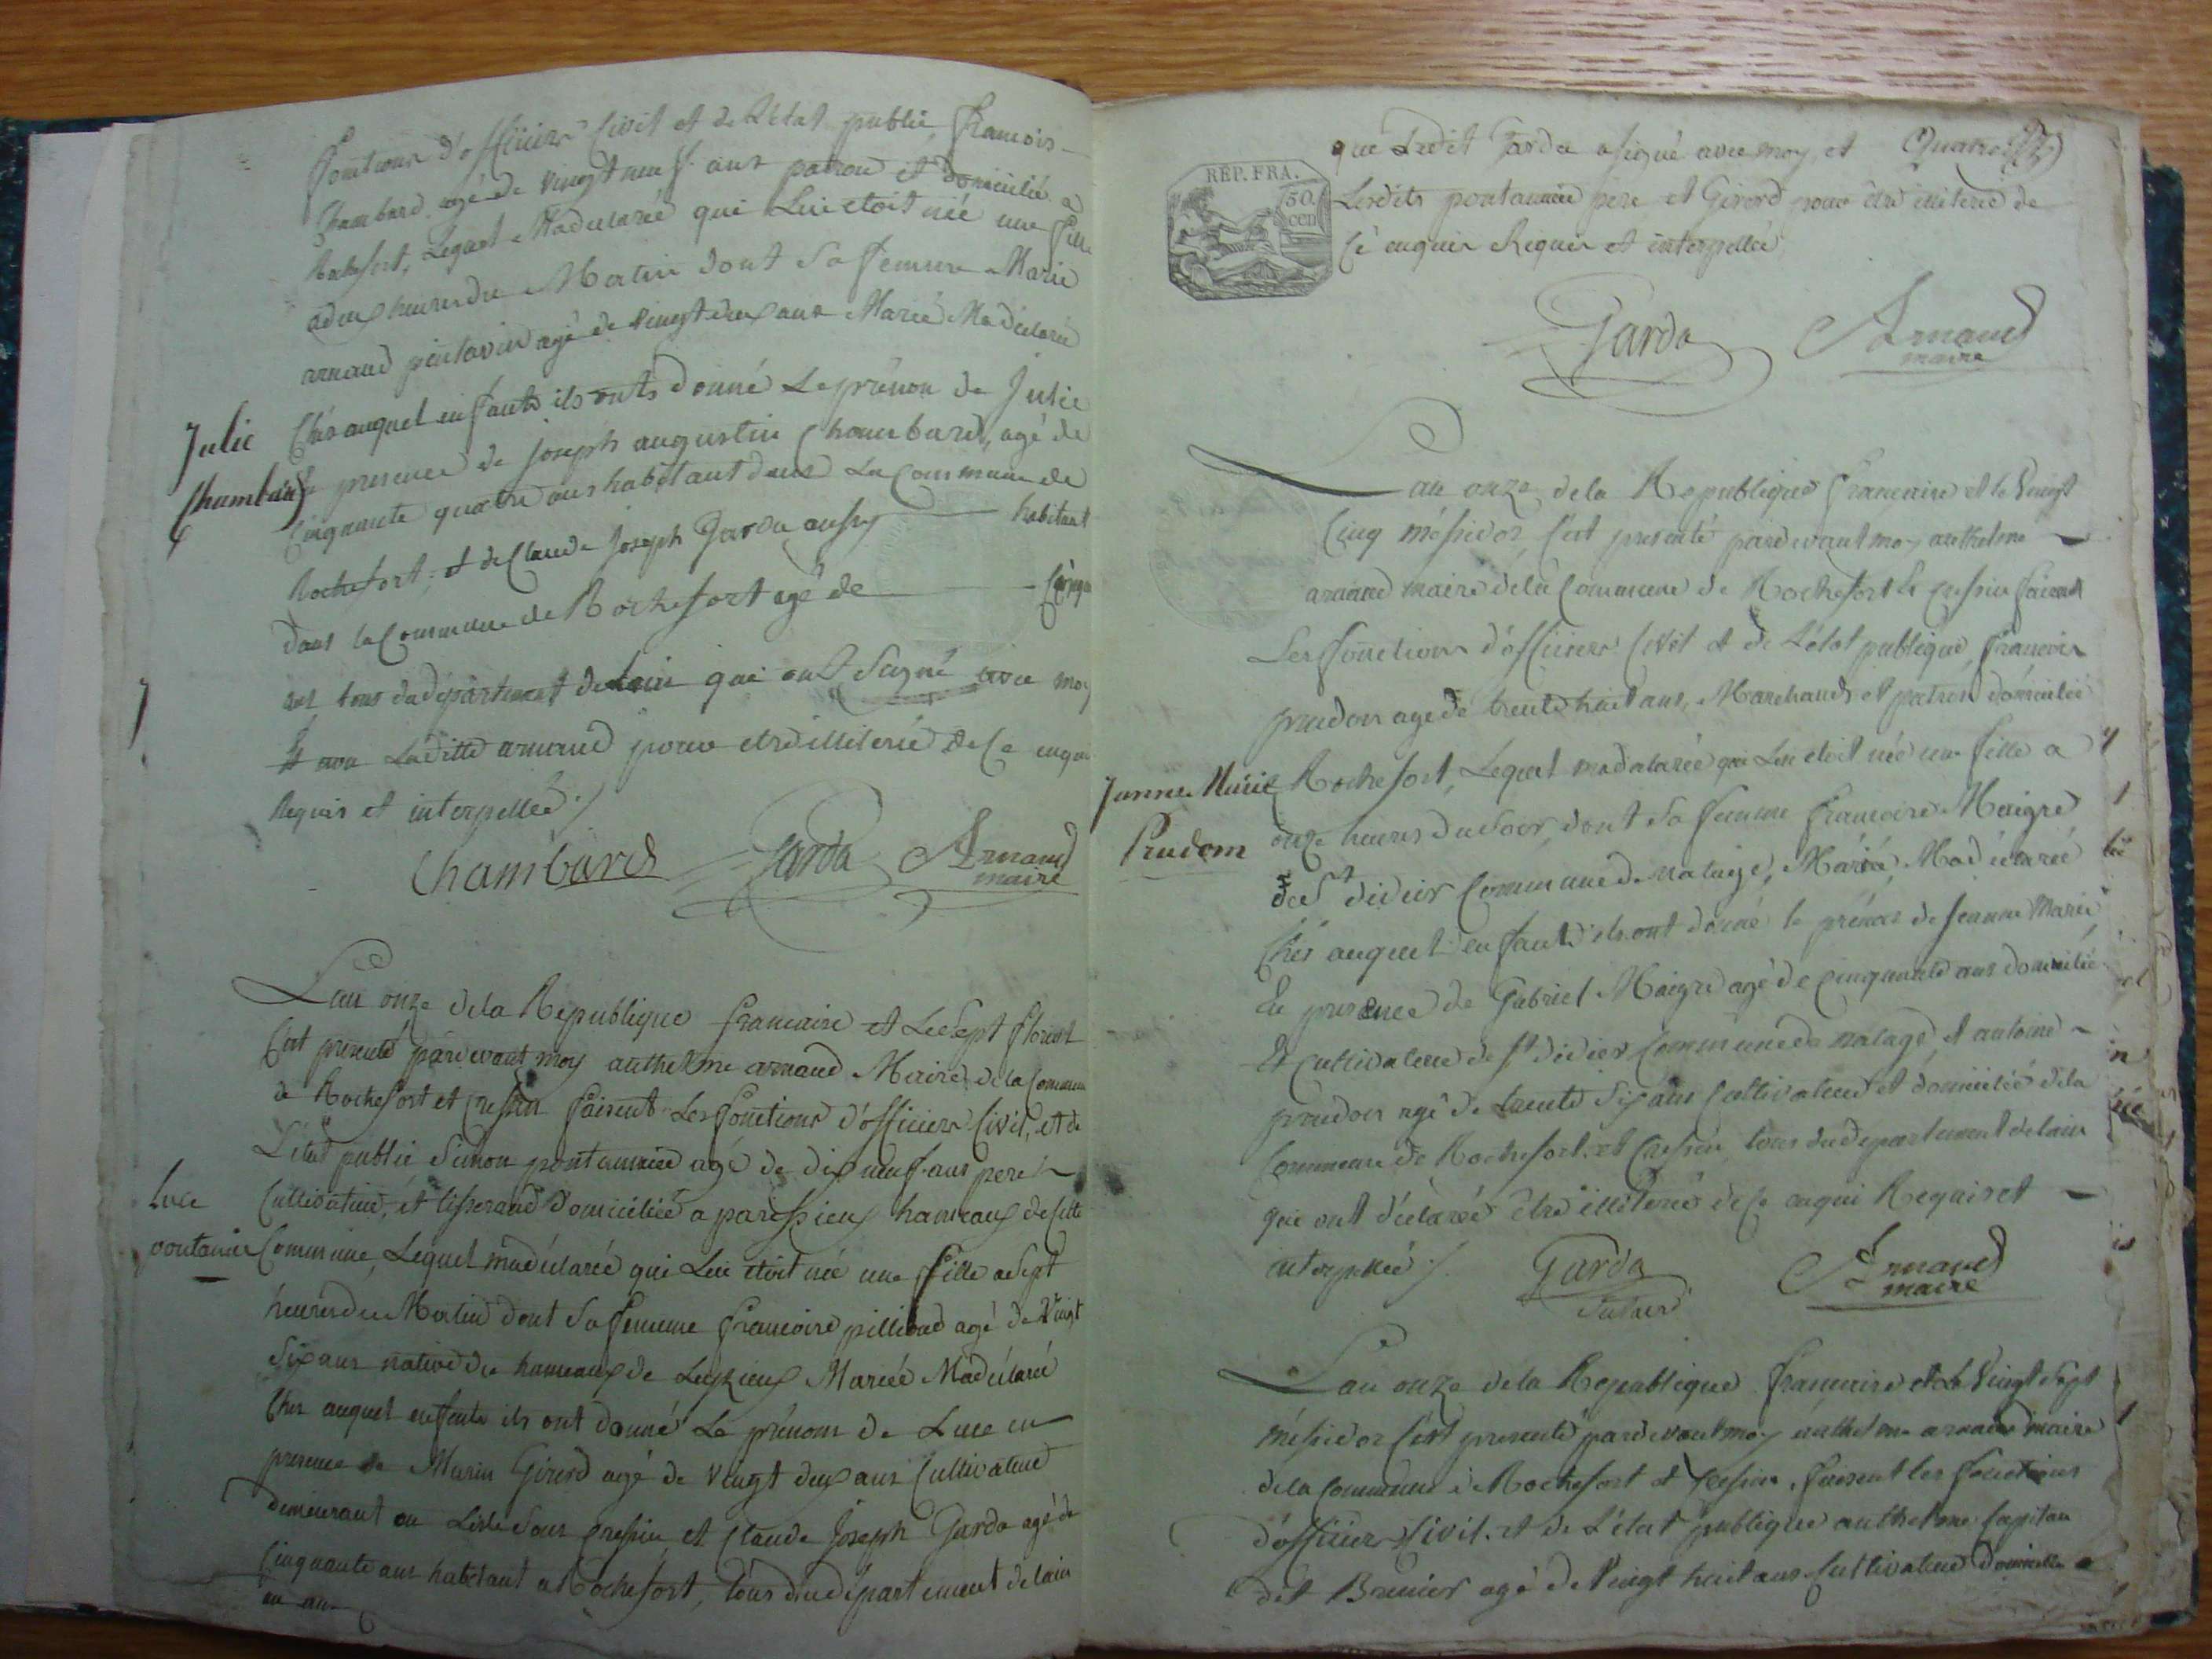 fonctions d'officier Civil et de L'état public, francois
Chambard agé de vingt neuf ans patron et domicilié a
Rochefort, Lequel Madeclareé que Lui etoit née une fille
a deux heures du Matin dont Sa femme Marie
arnaud agé de vingt deux ans Marié Madeclareé
Julie
Chambard
Chés auquel enfants ils onts donné Le prénom de Julie
presence de joseph augustin Chambard, agé de
Cinquante quatre ans habitant dans La Commune de
Rochefort, et de Claude Joseph Garda aussy habitant
dans la Commune de Rochefort agé de
ans tous du departement delain qui ont Signé avec moy
Laditte arnaud pour etre illiteré de Ce enquis
Requis et interpellée ./
Chambard Garda Arnaud
maire
Lan onze dela Republique francaise et Le Sept floreal
C'est presenté pardevant moy anthelme arnaud Maire dela Commune
de Rochefort et Cressin faisent Les fonctions d'officier Civil, et de
L'état public Simon pontannier agé de dix neuf ans pere
Luce
pontanier
Cultivateur, et tisserand domicilié a parissieux hameaux de Cette
Commune, Lequel madéclareé que Lui etoit née une fille a Sept
heures du Matin dont Sa femme francoise pilloud agé de Vingt
Six ans native du hameaux de Marieé Madéclareé
Chés auquel enfants ils ont donné Le prénom de Luce en
presence de Marin Girerd agé de Vingt deux ans Cultivateur
demeurant au Lisle Sous Cressin, et Claude Joseph Garda agé de
Cinquante ans habitant a Rochefort, tous du département delain
que Ledit Garda a signé avec moy et
REP. FRA.
50
cen
Lesdits pontannier pere et Girerd pour etre illiteré de
Cé enquis Requis et interpellée
Garda Arnaud
maire
Lan onze dela Republique francaise et le Vingt
Cinq méssidor, C'est presenté pardevant moy anthelme
arnaud maire dela Commune de Rochefort et Cressin faisent
Les fonctions d'officier Civil et de L'état publique, francois
prudon agé de trente huit ans, Marchand et patron domicilié
Janne Marie
Prudom
Rochefort, Lequel madalareé que Lui etoit née une fille a
onze heures du Soir, dont Sa femme francoise Maigre
de St didier Commune de nataige, Marié, Madéclareé
Chés auquel enfants ils ont donné le prénom de Jeanne Marie
En presence de Gabriel Maigre agé de Cinquante ans domicilié
Et Cultivateur de St didier Commune de natage, et antoine
prudon agé de trente Six ans Cultivateur et domicilié dela
Commune de Rochefort et Cressin, tous du departement delain
que ont déclareé etre illiterés de Ce enqui Requis et
interpelleé ./.
Garda Arnaud
maire
Lan onze dela Republique francaise et Le Vingt Sept
méssidor C'est presenté pardevant moy anthelme arnaud maire
dela Commune de Rochefort et Cressin, faisent les fonctions
d'officier Civil et de L'état publique anthelme Capitan
dit Brunier agé de Vingt huit ans Cultivateur domicilié a